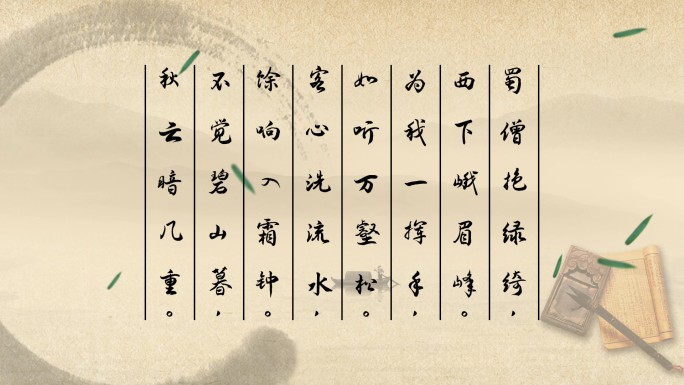 蜀僧抱绿绮，
西下峨眉峰。
为我一挥手，
如听万壑松。
客心洗流水，
馀响入霜钟。
不觉碧山暮，
秋云暗几重。